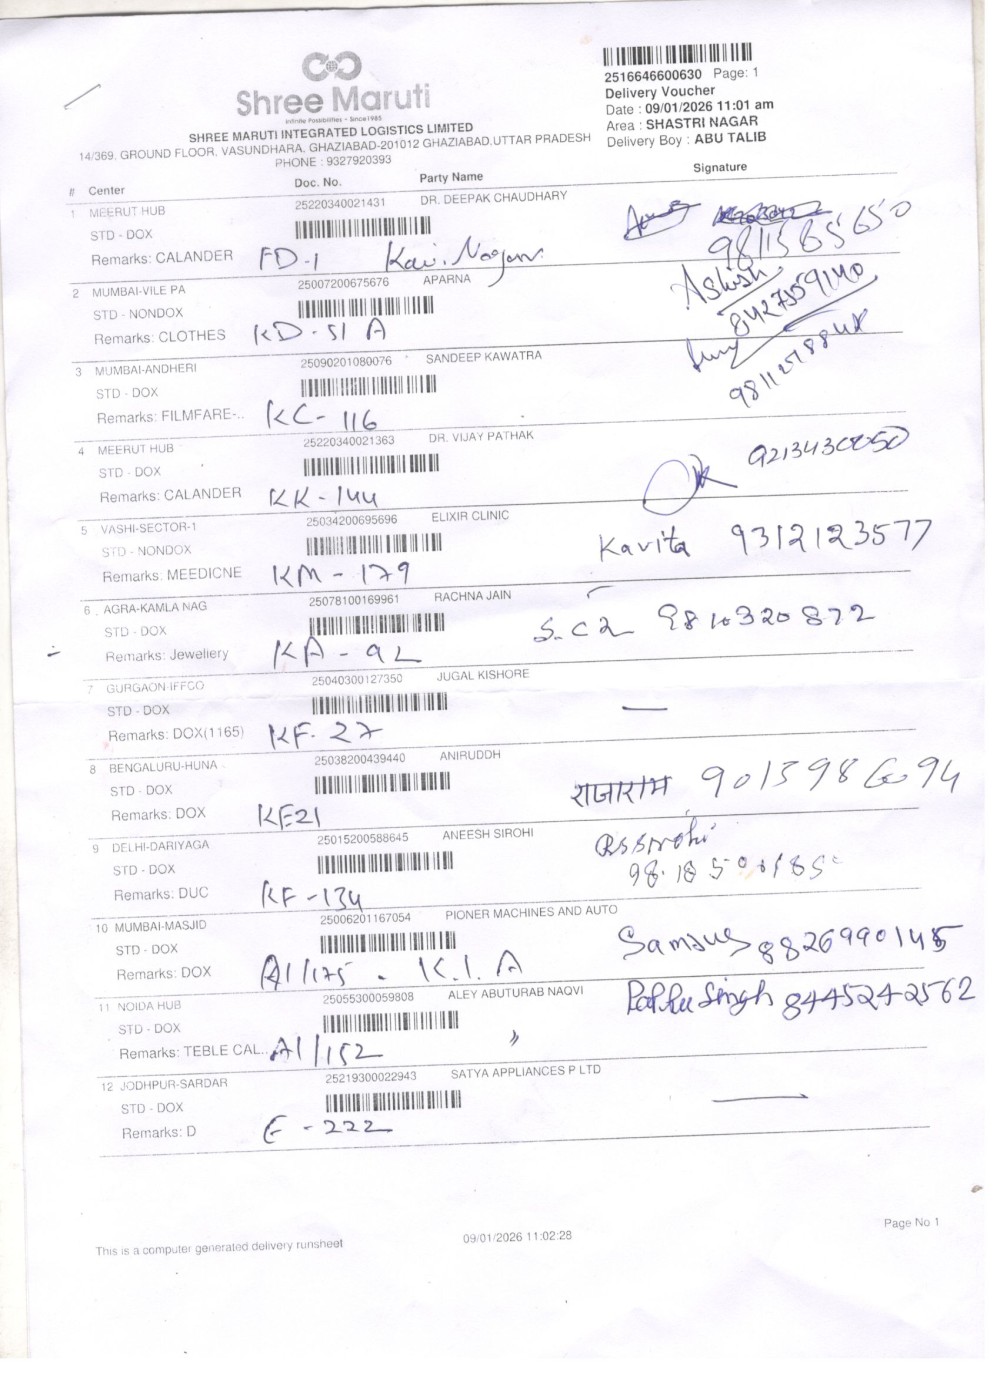 Shree Maruti
Infinite Possibilities - Since 1985
SHREE MARUTI INTEGRATED LOGISTICS LIMITED
14/369, GROUND FLOOR, VASUNDHARA, GHAZIABAD-201012 GHAZIABAD,UTTAR PRADESH
PHONE : 9327920393
2516646600630 Page: 1
Delivery Voucher
Date : 09/01/2026 11:01 am
Area : SHASTRI NAGAR
Delivery Boy : ABU TALIB
# Center Doc. No. Party Name Signature
1 MEERUT HUB 25220340021431 DR. DEEPAK CHAUDHARY
STD - DOX
Remarks: CALANDER FD-1 Kavi Nagar
2 MUMBAI-VILE PA 25007200675676 APARNA Ashish
STD - NONDOX
Remarks: CLOTHES KD-51 A
3 MUMBAI-ANDHERI 25090201080076 SANDEEP KAWATRA
STD - DOX
Remarks: FILMFARE-.. KC-116
4 MEERUT HUB 25220340021363 DR. VIJAY PATHAK
STD - DOX
Remarks: CALANDER KK-144
5 VASHI-SECTOR-1 25034200695696 ELIXIR CLINIC
STD - NONDOX Kavita 9312123577
Remarks: MEEDICNE KM-179
6 AGRA-KAMLA NAG 25078100169961 RACHNA JAIN
STD - DOX 9810320872
Remarks: Jewellery KA-92
7 GURGAON-IFFCO 25040300127350 JUGAL KISHORE
STD - DOX
Remarks: DOX(1165) KF-27
8 BENGALURU-HUNA 25038200439440 ANIRUDDH
STD - DOX राजाराम
Remarks: DOX KE21
9 DELHI-DARIYAGA 25015200588645 ANEESH SIROHI
STD - DOX
Remarks: DUC KF-134
10 MUMBAI-MASJID 25006201167054 PIONER MACHINES AND AUTO
STD - DOX 8826990145
Remarks: DOX A1/175 - K.I.A
11 NOIDA HUB 25055300059808 ALEY ABUTURAB NAQVI Singh 8445242562
STD - DOX
Remarks: TEBLE CAL.. A1/152 "
12 JODHPUR-SARDAR 25219300022943 SATYA APPLIANCES P LTD
STD - DOX
Remarks: D E-222
This is a computer generated delivery runsheet 09/01/2026 11:02:28 Page No 1